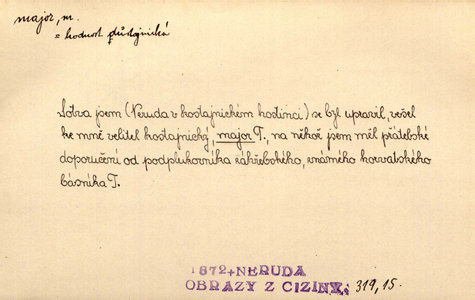 major, m.
= hodnost důstojnická
Sotva jsem (Neruda v kostajnickém hostinci) se byl upravil, vešel
ke mně velitel kostajnický, major T., na něhož jsem měl přátelské
doporučení od podplukovníka záhřebského, známého horvatského
básníka T.
1872+NERUDA
OBRAZY Z CIZINY, 319, 15.